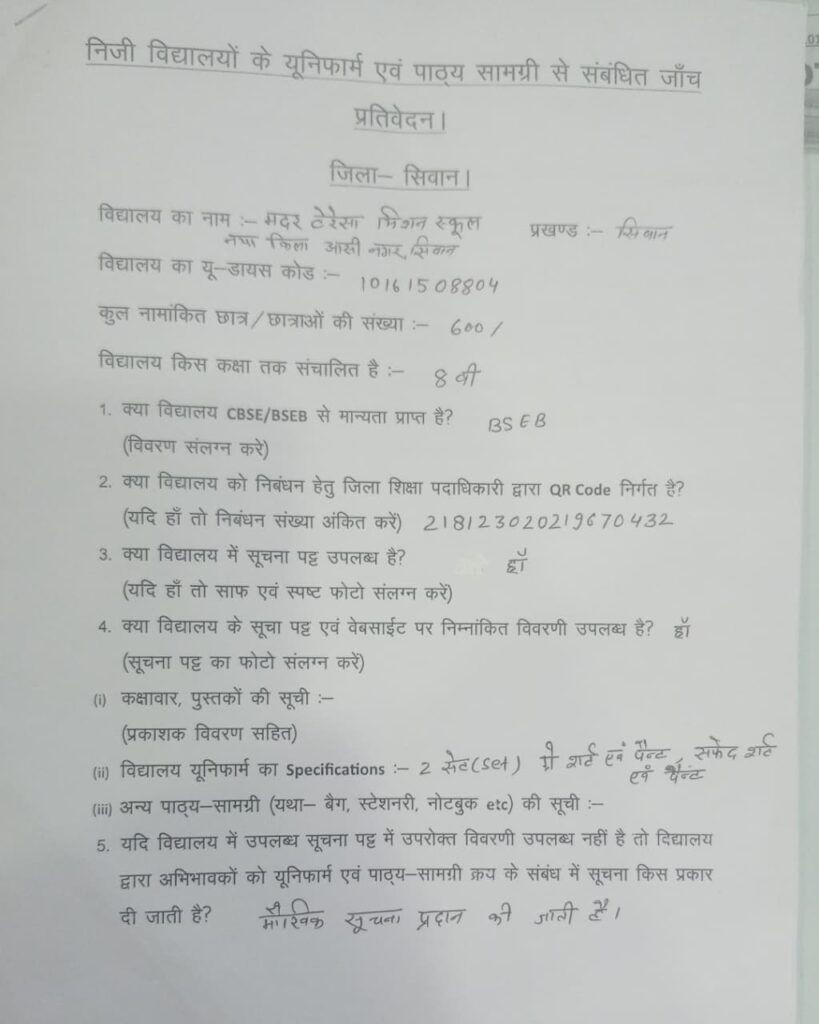 निजी विद्यालयों के यूनिफार्म एवं पाठ्य सामग्री से संबंधित जाँच
प्रतिवेदन।
जिला– सिवान।
विद्यालय का नाम :– मदर टेरेसा मिशन स्कूल प्रखण्ड :– सिवान
नया किला आसी नगर, सिवान
विद्यालय का यू–डायस कोड :– 10161508804
कुल नामांकित छात्र/छात्राओं की संख्या :– 600/
विद्यालय किस कक्षा तक संचालित है :– 8 वी
1. क्या विद्यालय CBSE/BSEB से मान्यता प्राप्त है? BSEB
(विवरण संलग्न करे)
2. क्या विद्यालय को निबंधन हेतु जिला शिक्षा पदाधिकारी द्वारा QR Code निर्गत है?
(यदि हाँ तो निबंधन संख्या अंकित करें) 218123020219670432
3. क्या विद्यालय में सूचना पट्ट उपलब्ध है? हाँ
(यदि हाँ तो साफ एवं स्पष्ट फोटो संलग्न करें)
4. क्या विद्यालय के सूचा पट्ट एवं वेबसाईट पर निम्नांकित विवरणी उपलब्ध है? हाँ
(सूचना पट्ट का फोटो संलग्न करें)
(i) कक्षावार, पुस्तकों की सूची :–
(प्रकाशक विवरण सहित)
(ii) विद्यालय यूनिफार्म का Specifications :– 2 सेट(set) ग्रे शर्ट एवं पैन्ट, सफेद शर्ट
एवं पैन्ट
(iii) अन्य पाठ्य–सामग्री (यथा– बैग, स्टेशनरी, नोटबुक etc) की सूची :–
5. यदि विद्यालय में उपलब्ध सूचना पट्ट में उपरोक्त विवरणी उपलब्ध नहीं है तो दिद्यालय
द्वारा अभिभावकों को यूनिफार्म एवं पाठ्य–सामग्री क्रय के संबंध में सूचना किस प्रकार
दी जाती है? मौखिक सूचना प्रदान की जाती है।